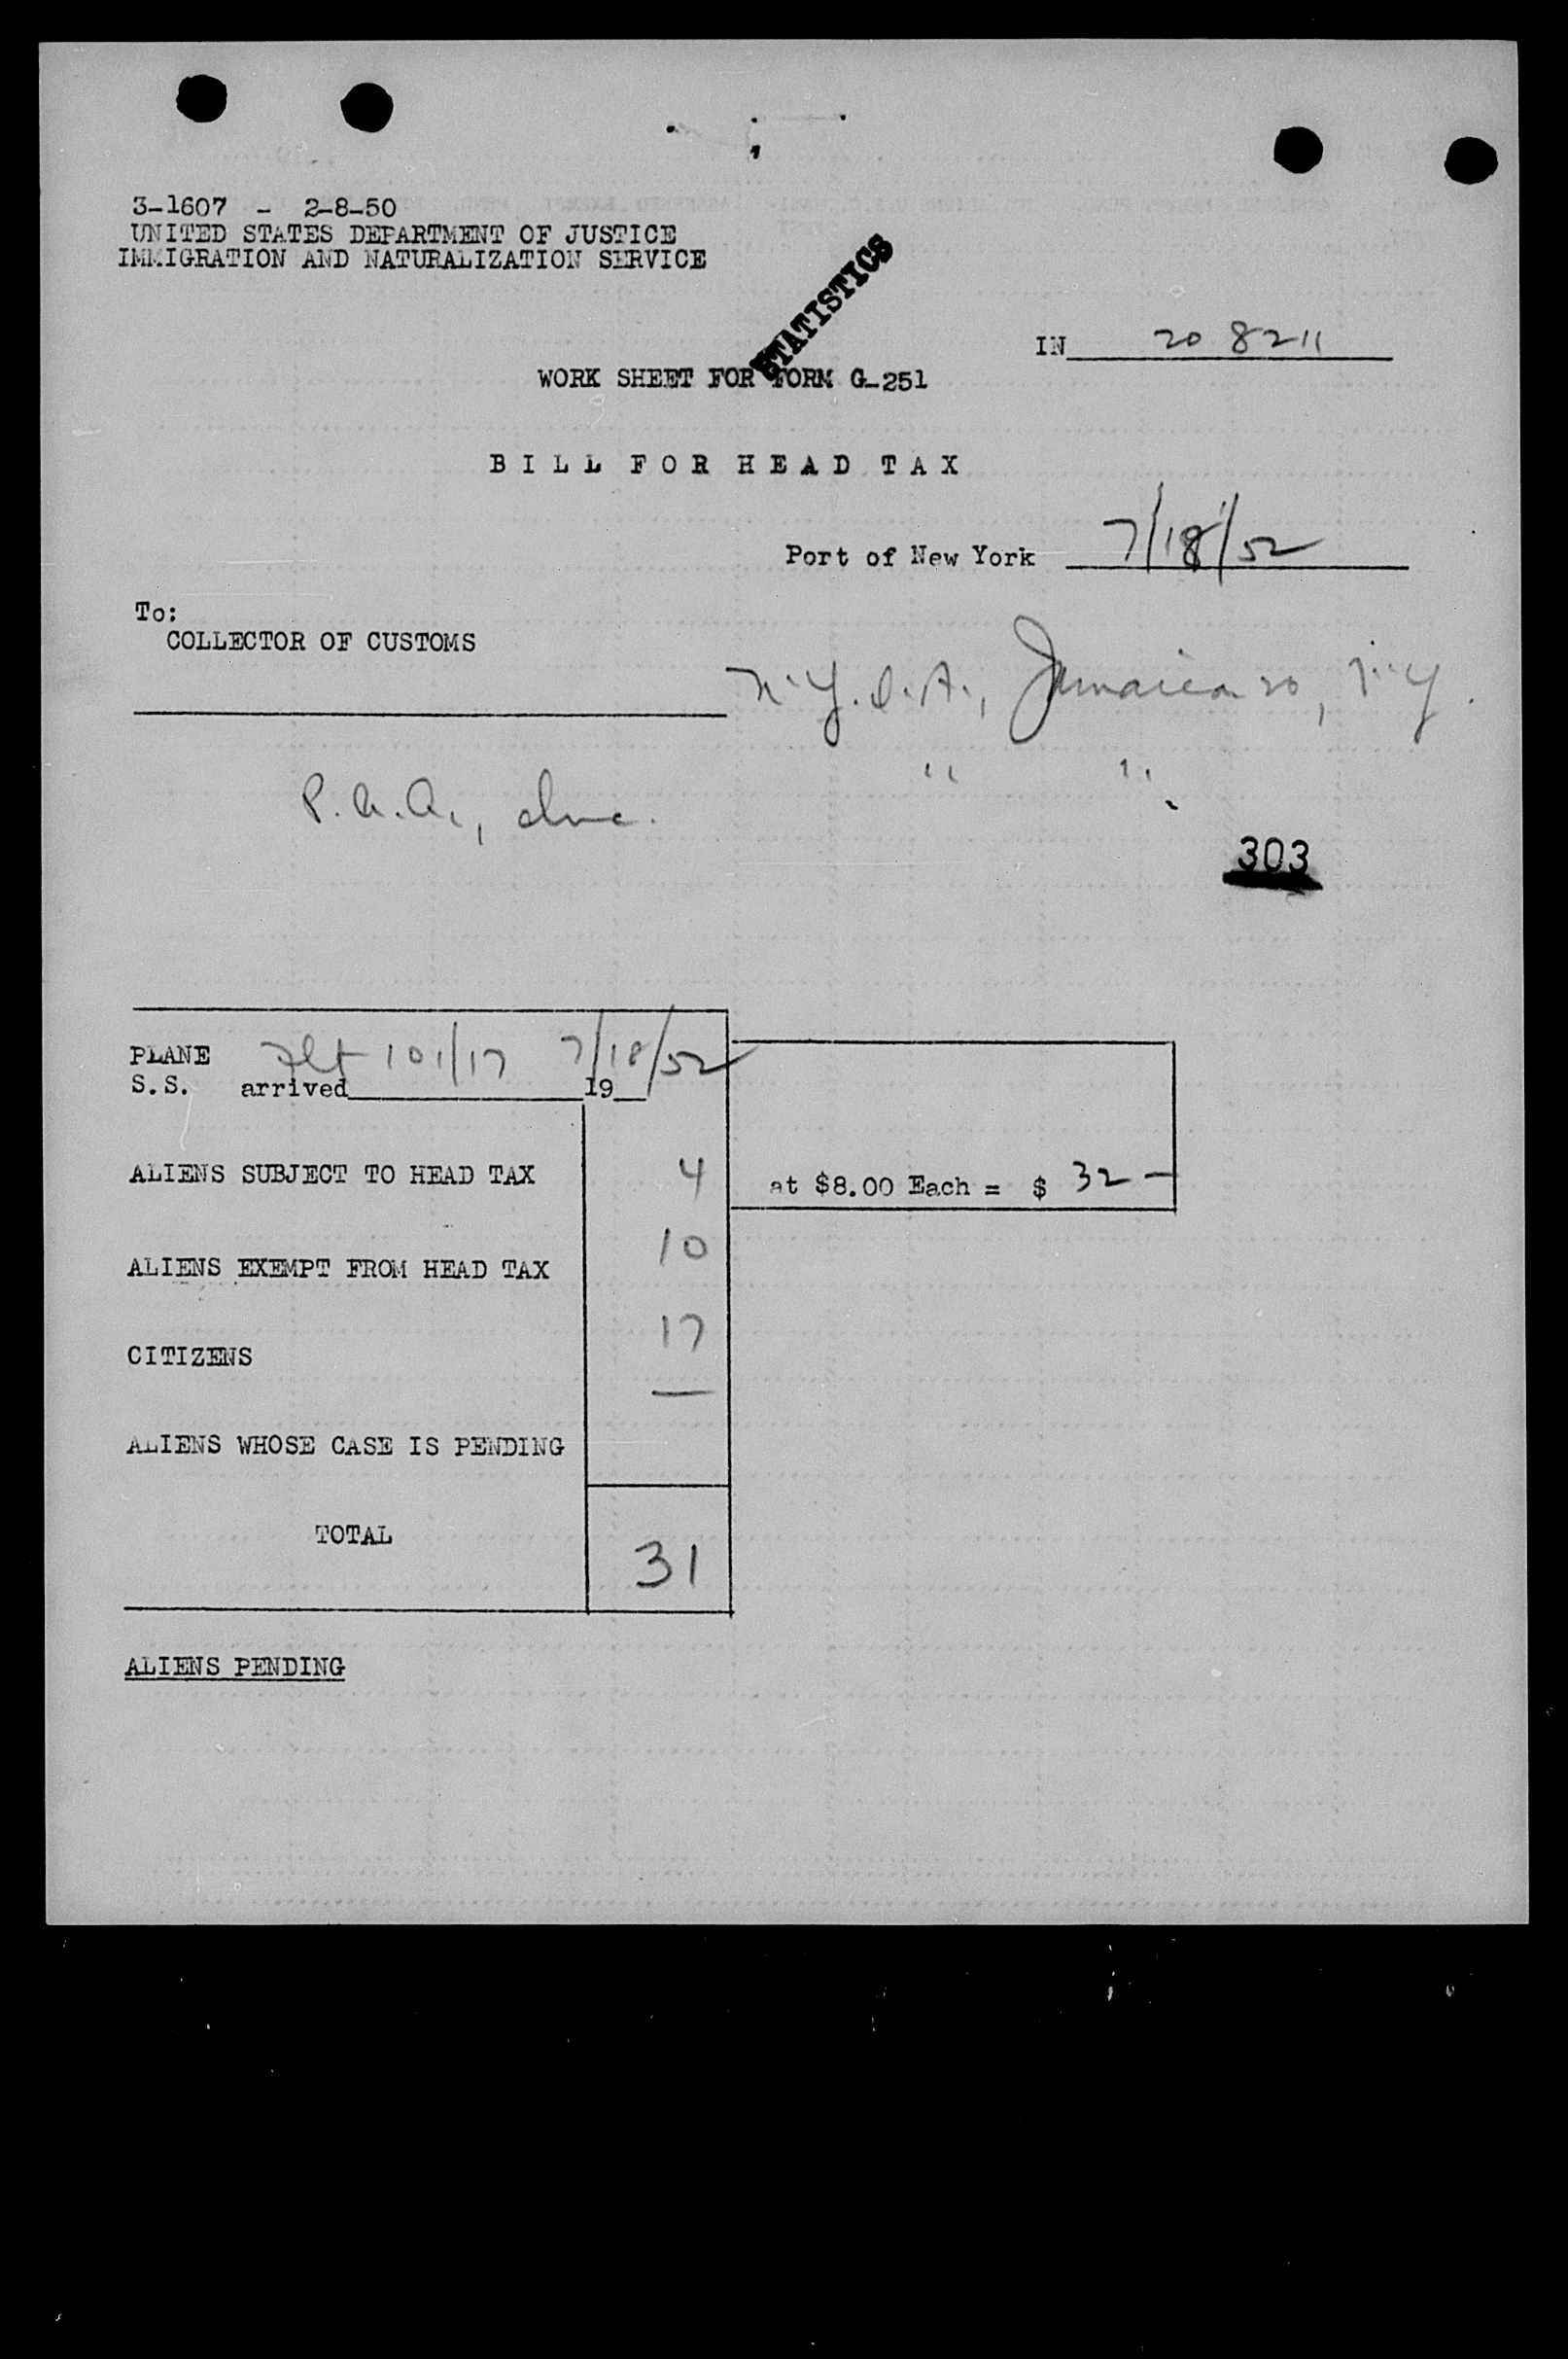 3-1607 - 2-8-50
UNITED STATES DEPARTMENT OF JUSTICE
IMMIGRATION AND NATURALIZATION SERVICE
STATISTICS
IN 20 8211
WORK SHEET FOR FORM G-251
BILL FOR HEAD TAX
Port of New York 7/18/52
To:
COLLECTOR OF CUSTOMS
N.Y.I.A., Jamaica 20, N.Y.
" "
P.A.A., Inc.
303
PLANE Flt 101/17 7/18/52
S.S. arrived 19
ALIENS SUBJECT TO HEAD TAX 4 at $8.00 Each = $ 32 -
ALIENS EXEMPT FROM HEAD TAX 10
CITIZENS 17
ALIENS WHOSE CASE IS PENDING —
TOTAL 31
ALIENS PENDING